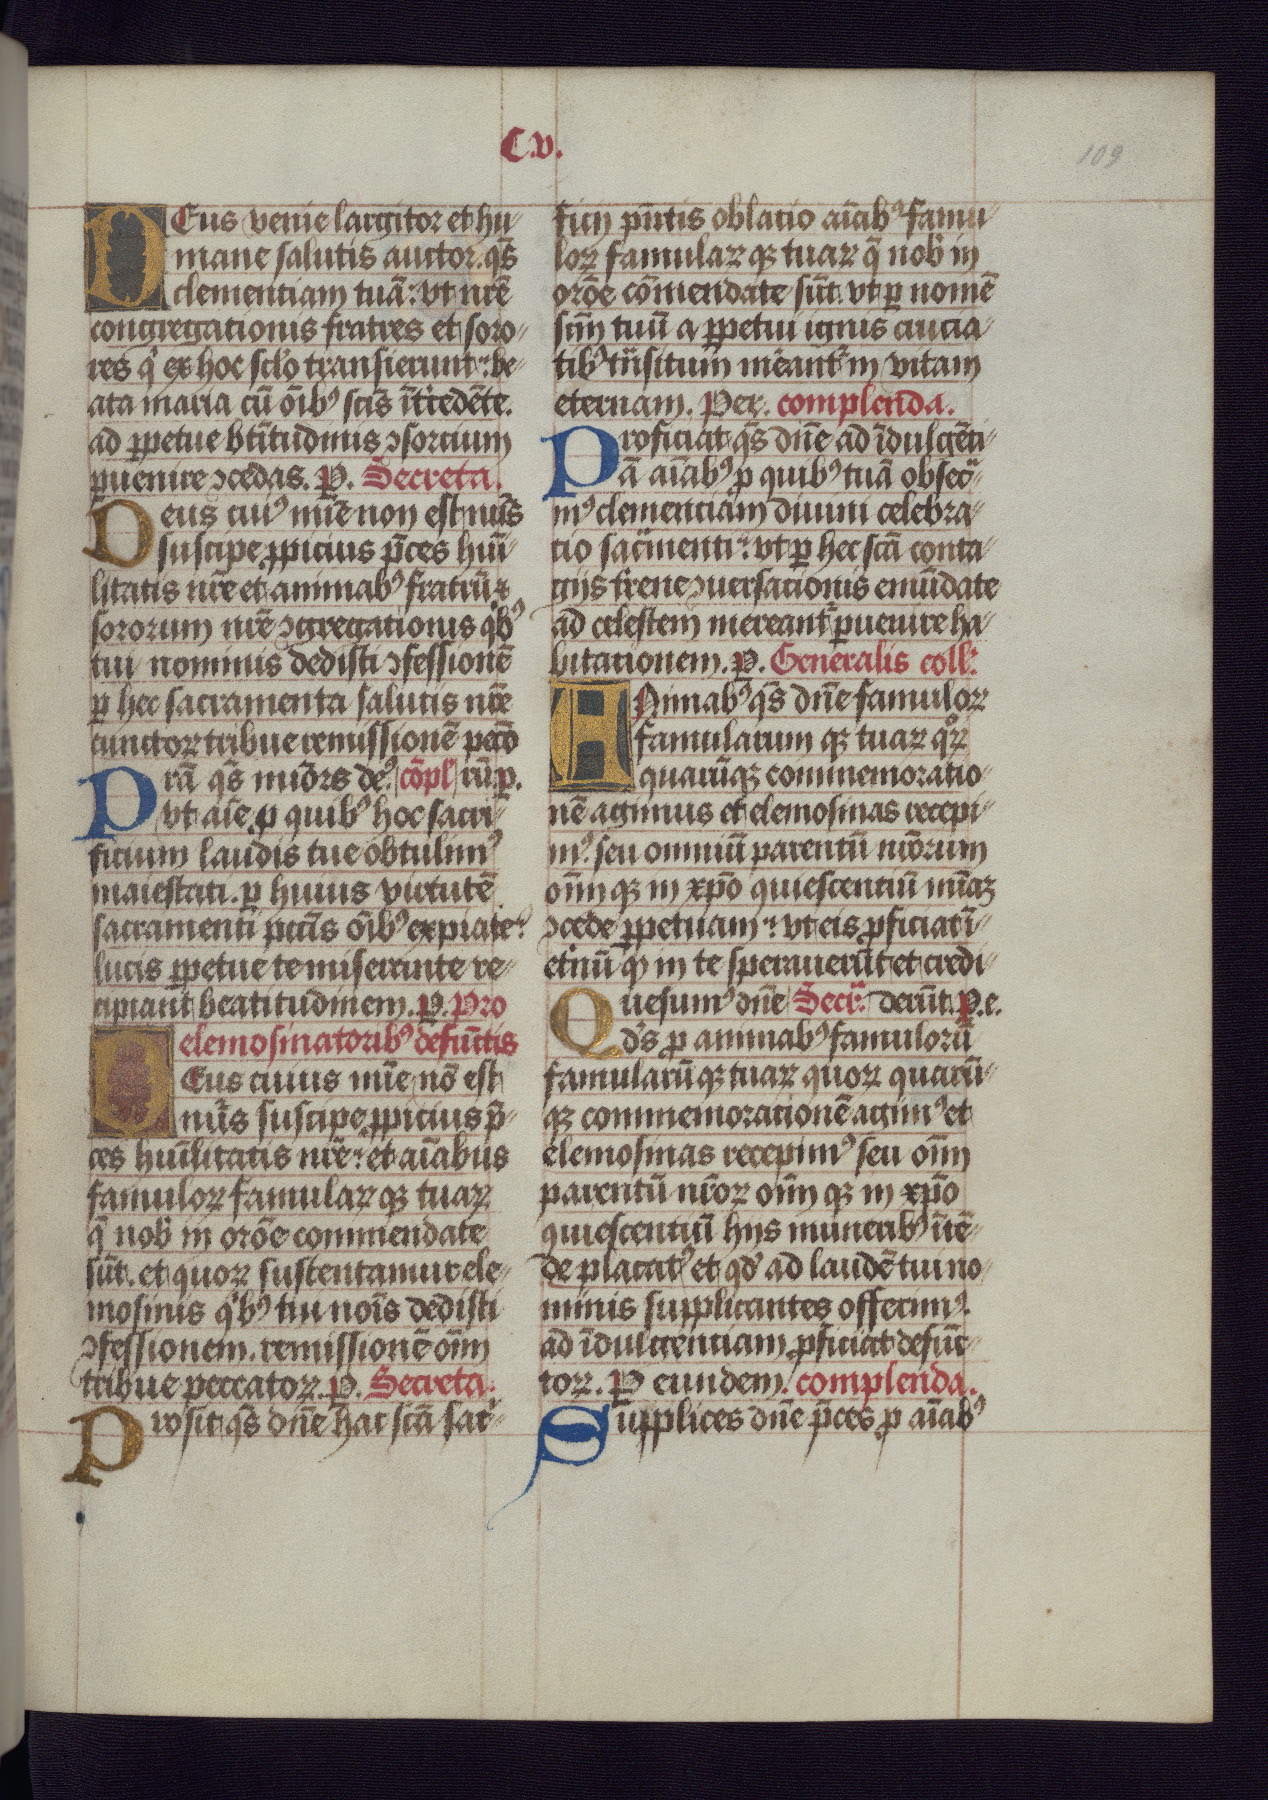 C.v.
109
DEus venie largitor et hu-
mane salutis auctor. qs̄
clementiam tuā: vt nr̄e
congregationis fratres et soro-
res q̇ ex hoc sclo transierunt: be-
ata maria cū oībꝰ scīs īt̄cedēte.
ad ꝑpetue bt̄itudinis ꝯsortium
ꝑuenire ꝯcedas. P. Secreta.
Deus cuiꝰ mīe non est nūs
suscipe ꝓpicius p̄ces hūi-
litatis nr̄e et animabꝰ fratrū ⁊
sororum nr̄e ꝯgregationis qͥbꝰ
tui nominis dedisti ꝯfessionē
ꝑ hec sacramenta salutis nr̄e
cunctoꝝ tribue remissionē pccō
Prā qs̄ mīōrs deꝰ cōpl rū. p.
vt aīe ꝓ quibꝰ hoc sacri-
ficium laudis tue obtulimꝰ
maiestati. ꝑ huius virtutē
sacramenti pctīs oībꝰ expiate:
lucis ꝑpetue te miserante re-
cipiant beatitudinem. P. Pro
elemosinatoribꝰ defūctis
DEus cuius mīe nō est
nūs suscipe ꝓpicius p̄-
ces hūilitatis nr̄e: et aīabus
famuloꝝ famulaꝝ qꝫ tuaꝝ
q̄ nob̄ in orōe commendate
sūt. et quoꝝ sustentamur ele-
mosinis qͥbꝰ tui noīs dedisti
ꝯfessionem. remissionē oīm
tribue peccatoꝝ. P. Secreta.
Prosit qs̄ dn̄e hac scā sac̄-
ficij pn̄tis oblatio aīabꝰ famu-
loꝝ famulaꝝ qꝫ tuaꝝ q̄ nob̄ in
orōe cōmendate sūt. vt ꝑ nomē
scm̄ tuū a ꝑpetui ignis crucia-
tibꝰ tn̄situm mēant̄ in vitam
eternam. Per. complenda.
Proficiat qs̄ dn̄e ad īdulgēti-
ā aīabꝰ ꝓ quibꝰ tuā obsec̄-
mꝰ clementiam diuini celebra-
tio sac̄menti: vt ꝑ hec scā conta-
gijs t̄rene ꝯuersationis emūdate
ad celestem mereant̄ ꝑuenire ha-
bitationem. P. Generalis coll:
ANimabꝰ qs̄ dn̄e famuloꝝ
famularum qꝫ tuaꝝ qͦꝝ
quarūqꝫ commemoratio-
nē agimus et elemosinas recepi-
mꝰ. seu omniū parentū nr̄orum
oīm qꝫ in xp̄o quiescentiū mīaꝫ
ꝯcede ꝑpetuam: vt eis ꝓficiat ī
et̄nū qͥ in te sperauerūt et credi-
Quesumꝰ dn̄e Secr̄: derūt. P. e.
ds̄ ꝓ animabꝰ famulorū
famularū qꝫ tuaꝝ quoꝝ quarū-
qꝫ commemorationē agimꝰ et
elemosinas recepimꝰ seu oīm
parentū nr̄oꝝ oīm qꝫ in xp̄o
quiescentiū hijs muneribꝰ ītē-
de placatꝰ et qd̓ ad laudē tui no-
minis supplicantes offerimꝰ.
ad īdulgentiam ꝓficiat defūc-
toꝝ. P eundem. complenda.
Supplices dn̄e p̄ces ꝓ aīabꝰ